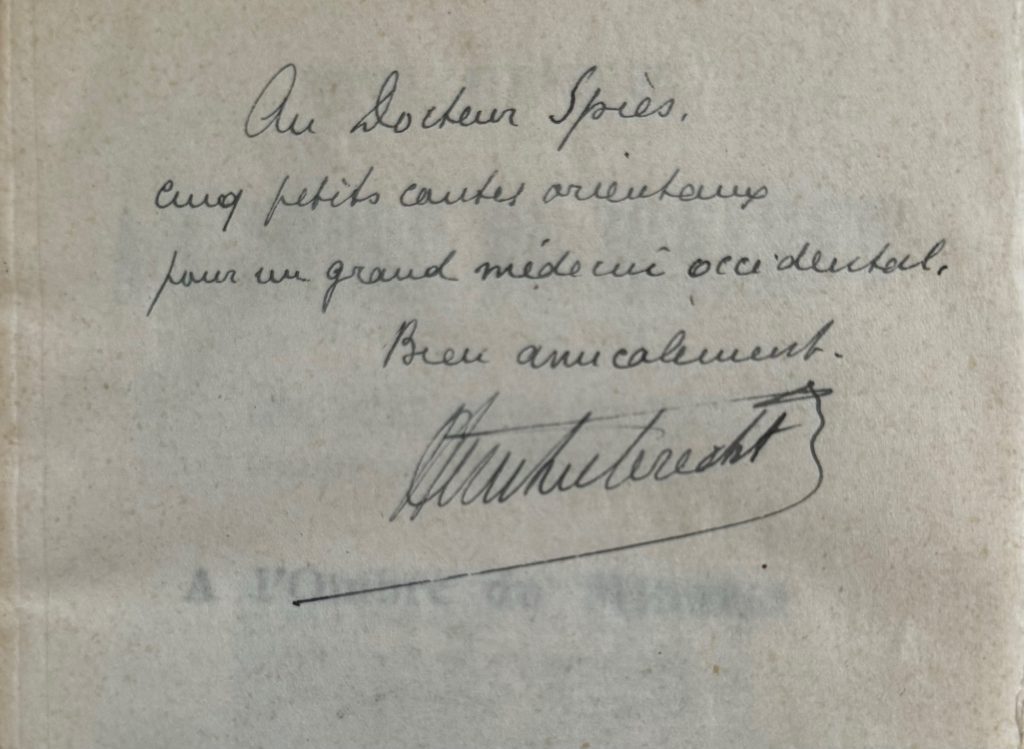 Au Docteur Spiès,
cinq petits contes orientaux
pour un grand médecin occidental.
Bien amicalement.
A l'Ombre du